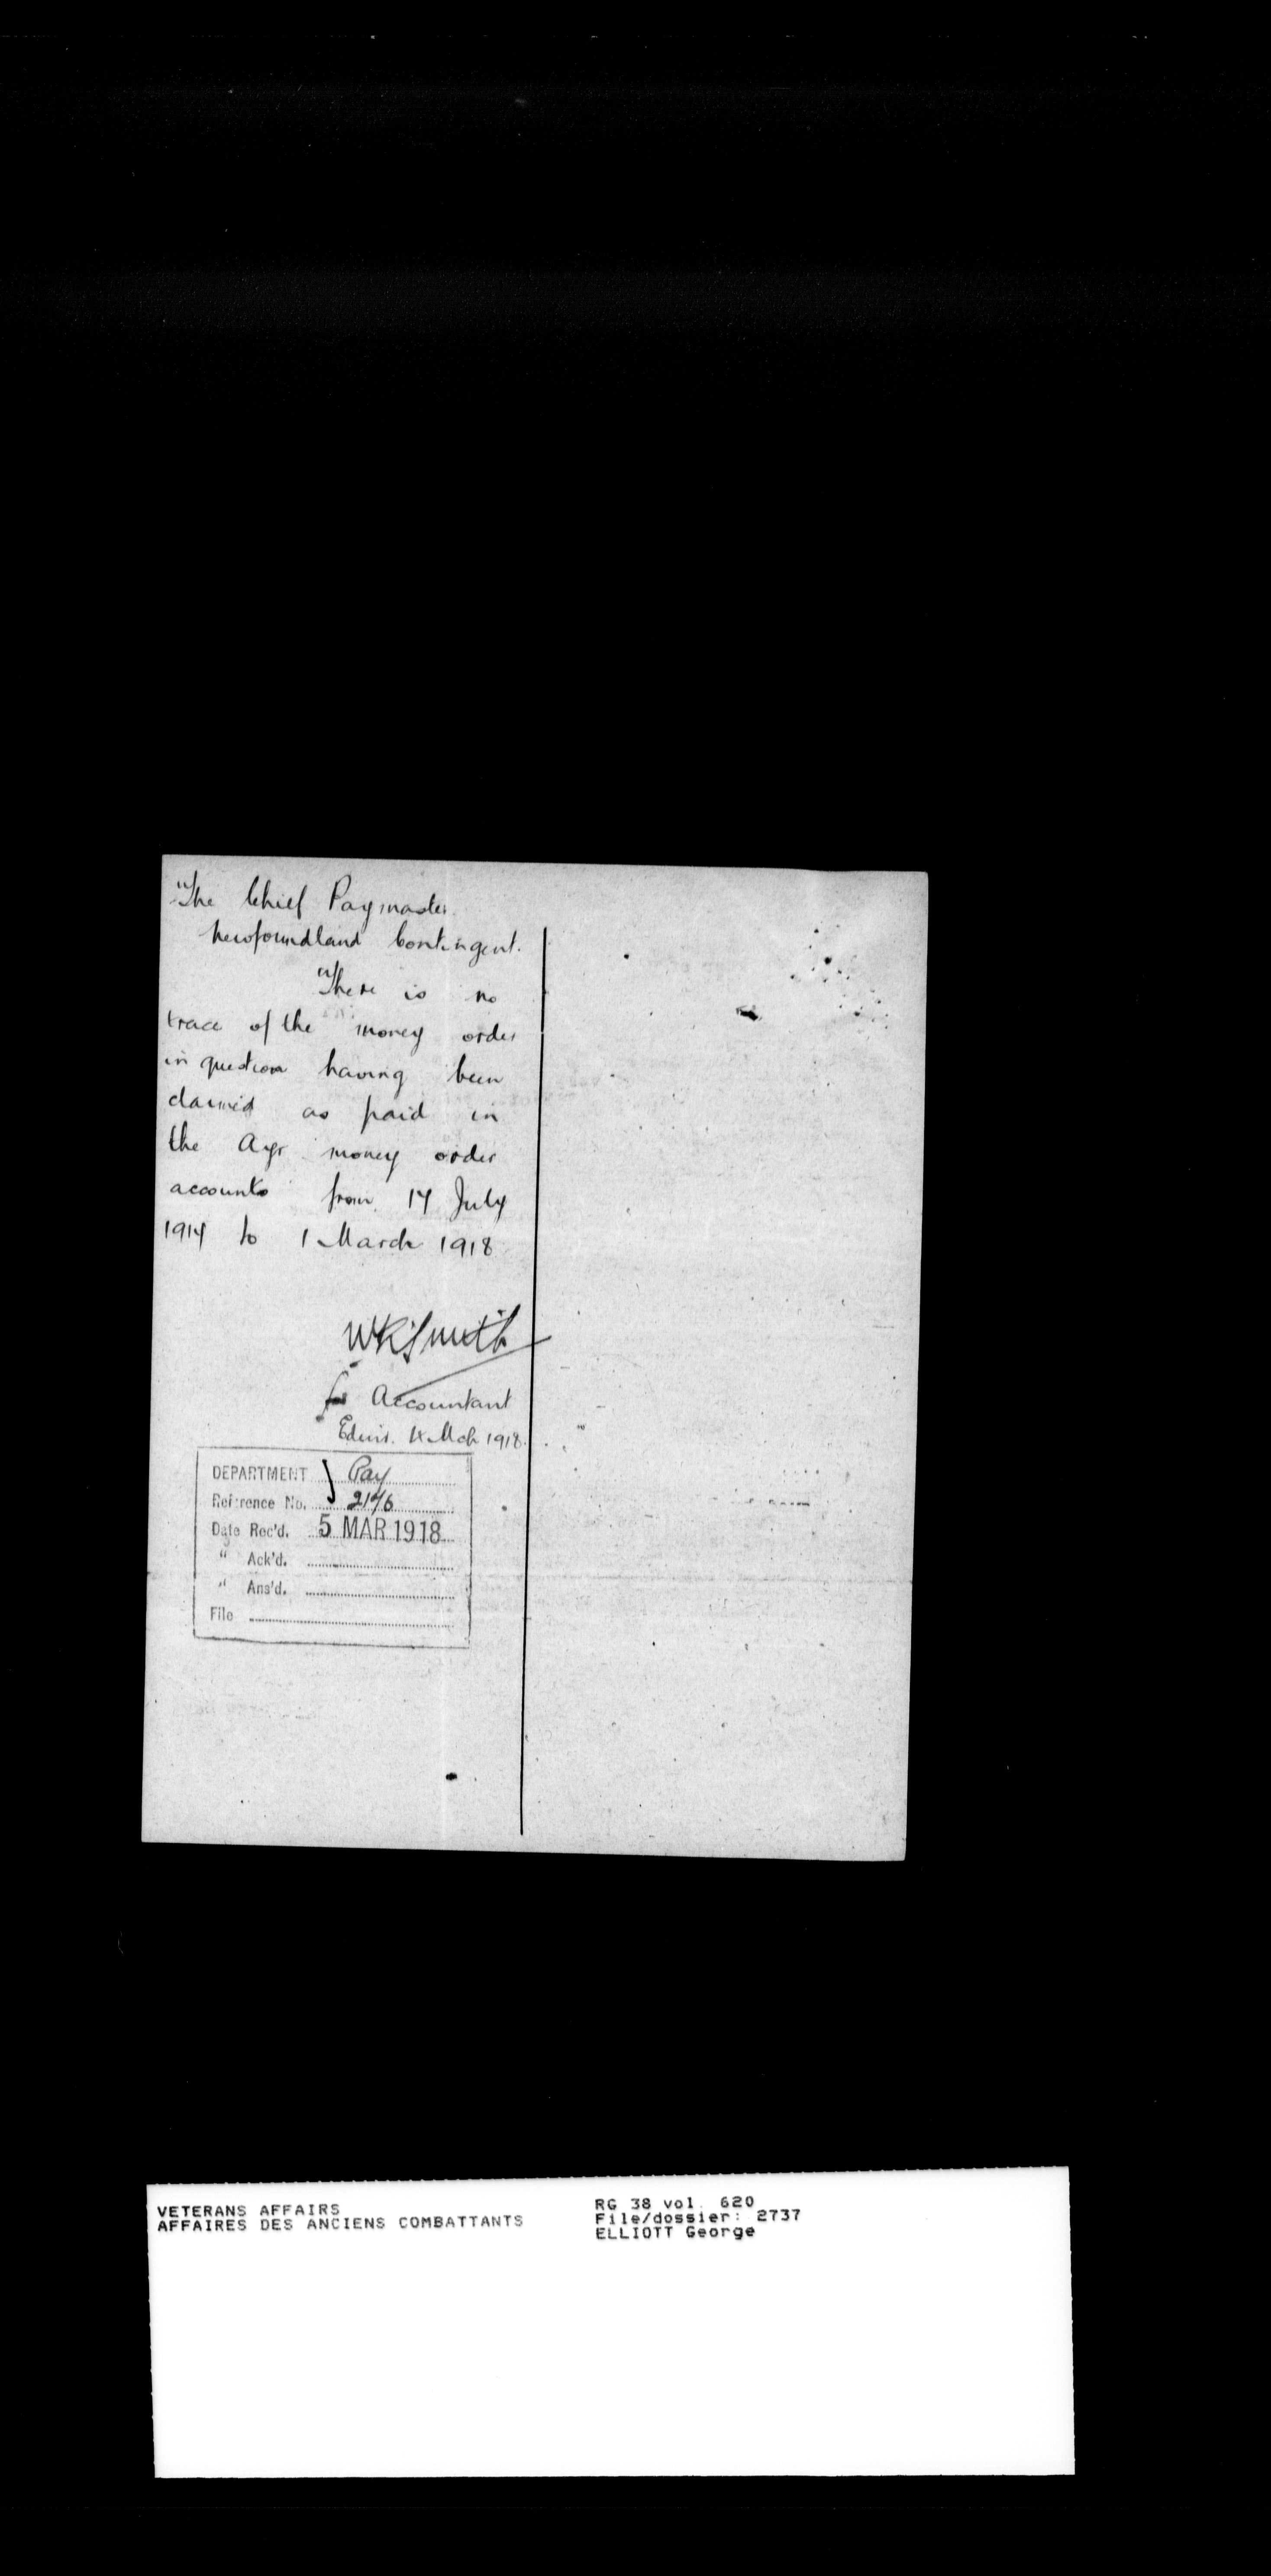 The Chief Paymaster
Newfoundland Contingent.
There is no
trace of the money order
in question having been
claimed as paid in
the Ayr money order
accounts from 17 July
1917 to 1 March 1918
WKSmith
for Accountant
Edin. 4 Mch 1918.
DEPARTMENT } Pay
Reference No. 2176
Date Rec'd. 5 MAR 1918
" Ack'd.
" Ans'd.
File
VETERANS AFFAIRS
AFFAIRES DES ANCIENS COMBATTANTS
RG 38 vol. 620
File/dossier: 2737
ELLIOTT George